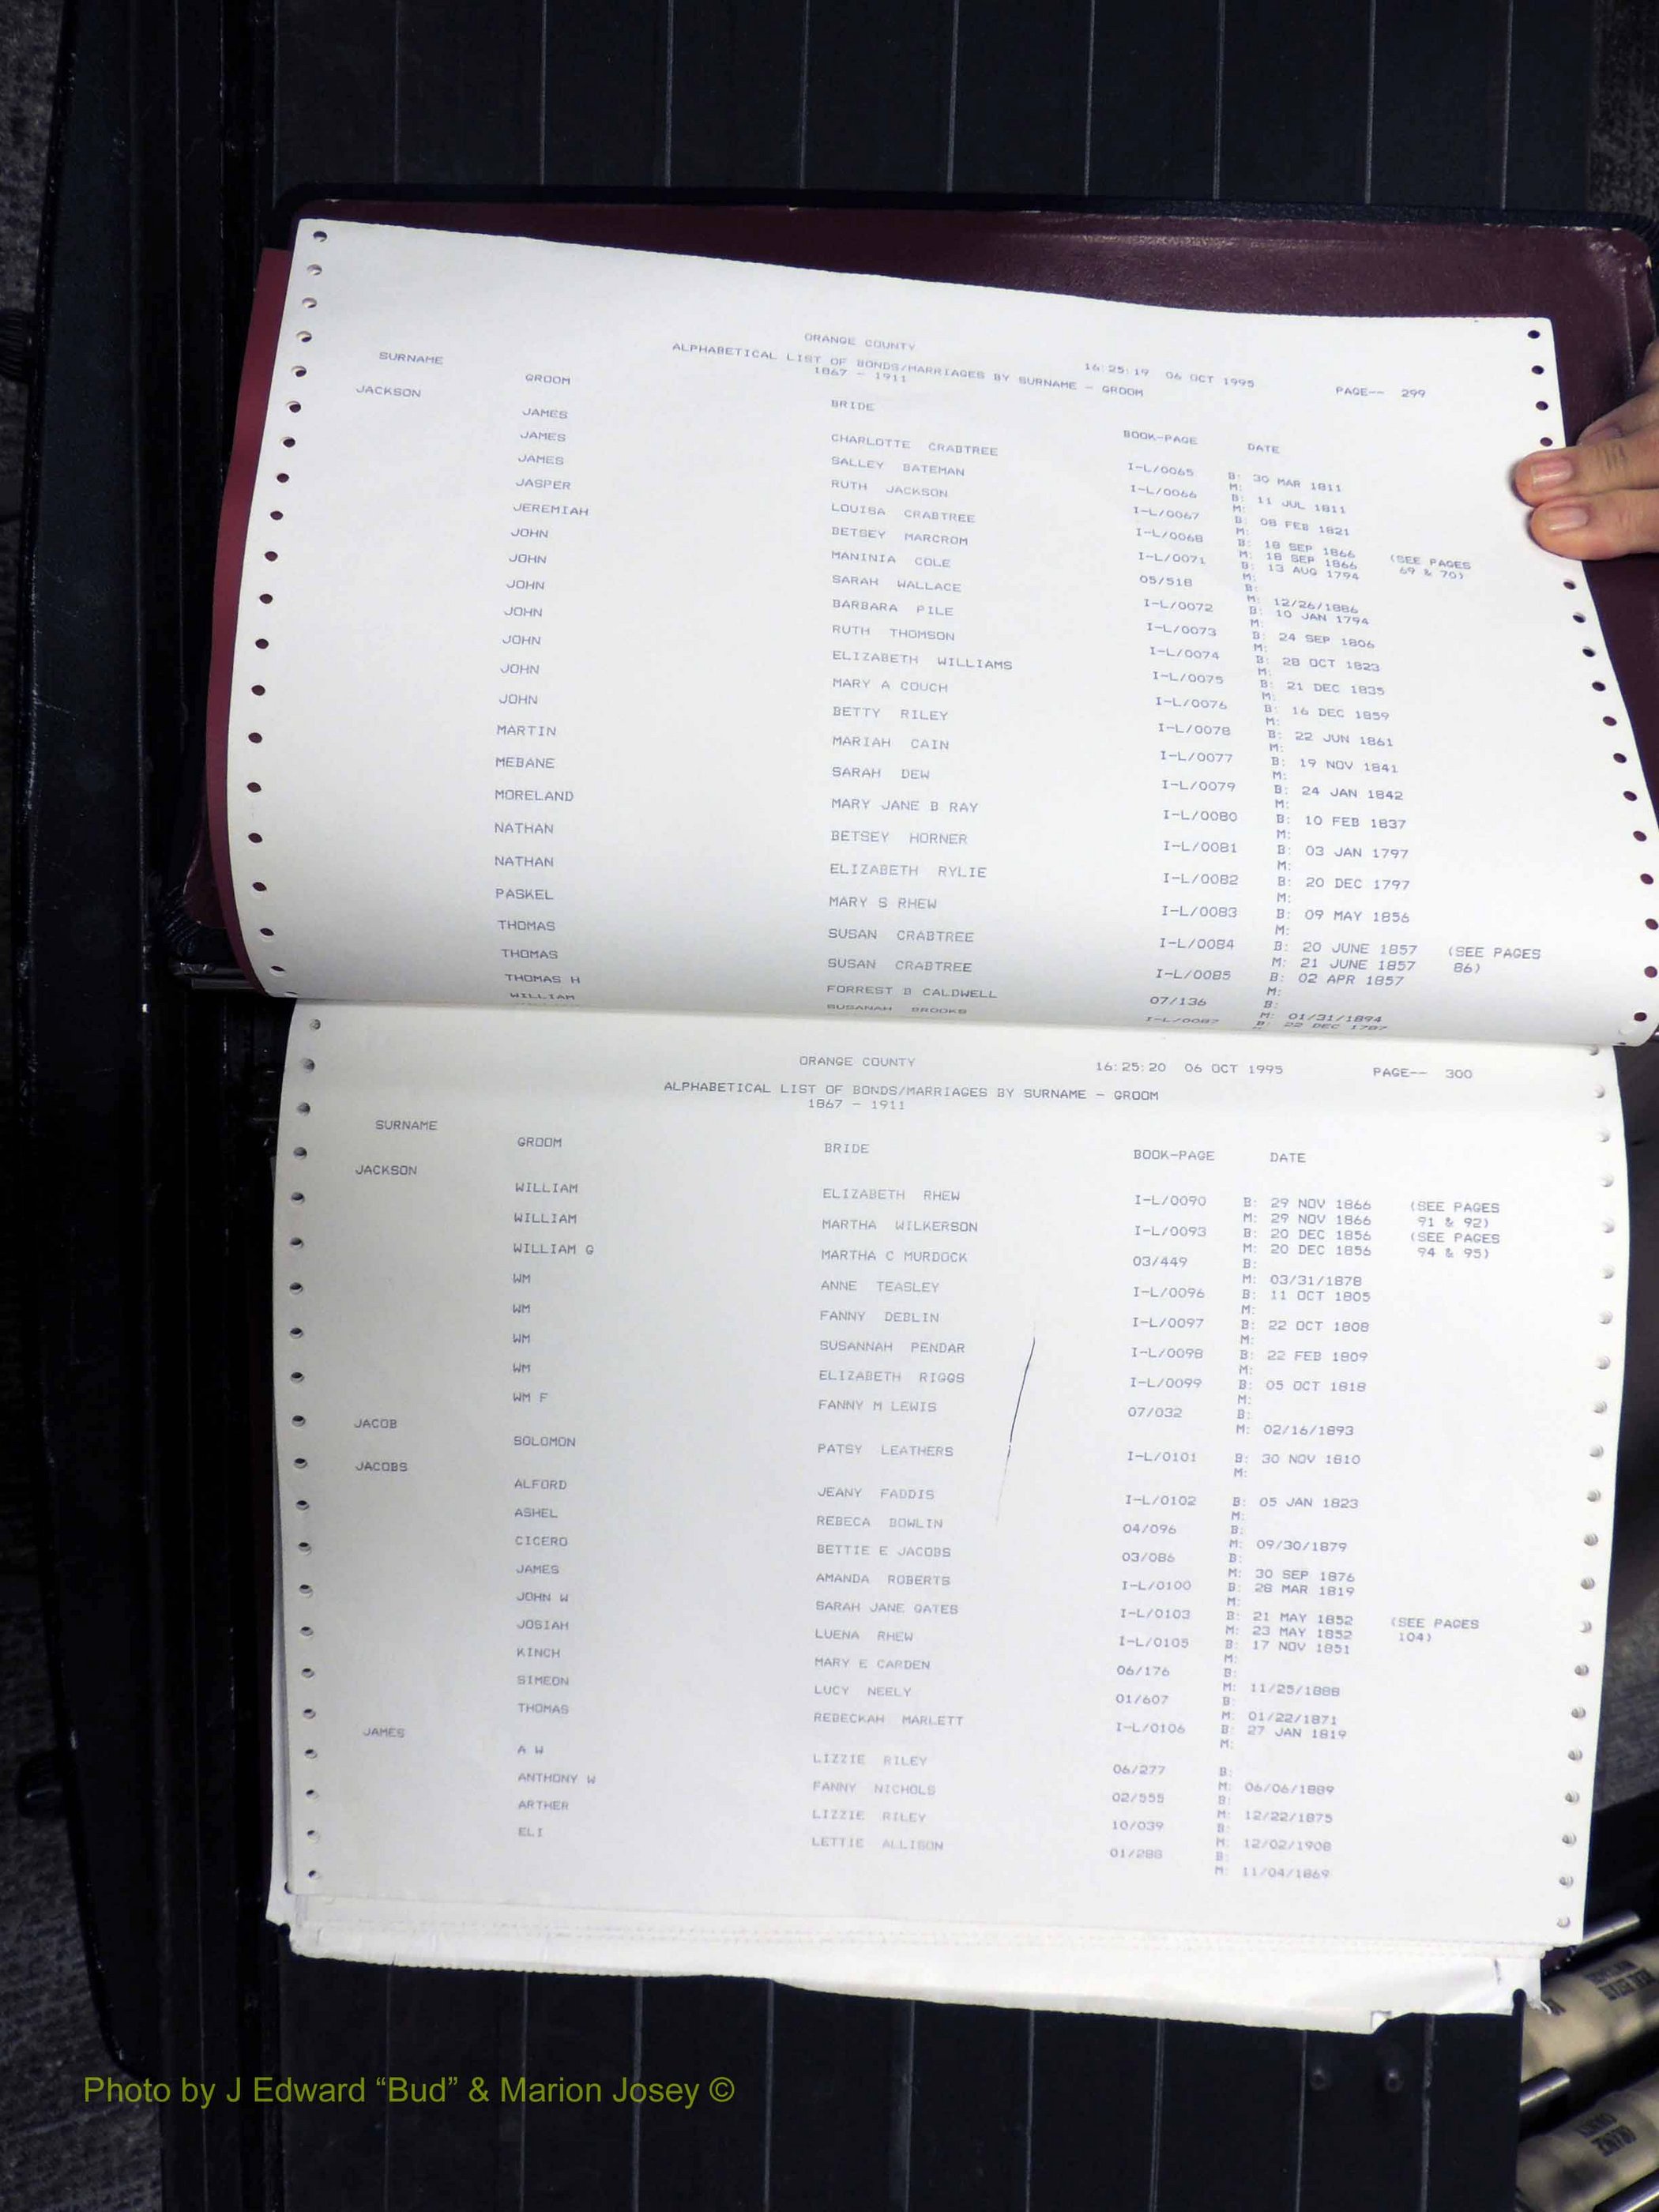 ORANGE COUNTY 16:25:19 06 OCT 1995 PAGE-- 299
ALPHABETICAL LIST OF BONDS/MARRIAGES BY SURNAME - GROOM
1867 - 1911
SURNAME GROOM BRIDE BOOK-PAGE DATE
JACKSON
JAMES CHARLOTTE CRABTREE I-L/0065 B: 30 MAR 1811
M:
JAMES SALLEY BATEMAN I-L/0066 B: 11 JUL 1811
M:
JAMES RUTH JACKSON I-L/0067 B: 08 FEB 1821
M:
JASPER LOUISA CRABTREE I-L/0068 B: 18 SEP 1866 (SEE PAGES
M: 18 SEP 1866 69 & 70)
JEREMIAH BETSEY MARCROM I-L/0071 B: 13 AUG 1794
M:
JOHN MANINIA COLE 05/518 B:
M: 12/26/1886
JOHN SARAH WALLACE I-L/0072 B: 10 JAN 1794
M:
JOHN BARBARA PILE I-L/0073 B: 24 SEP 1806
M:
JOHN RUTH THOMSON I-L/0074 B: 28 OCT 1823
M:
JOHN ELIZABETH WILLIAMS I-L/0075 B: 21 DEC 1835
M:
JOHN MARY A COUCH I-L/0076 B: 16 DEC 1859
M:
JOHN BETTY RILEY I-L/0078 B: 22 JUN 1861
M:
MARTIN MARIAH CAIN I-L/0077 B: 19 NOV 1841
M:
MEBANE SARAH DEW I-L/0079 B: 24 JAN 1842
M:
MORELAND MARY JANE B RAY I-L/0080 B: 10 FEB 1837
M:
NATHAN BETSEY HORNER I-L/0081 B: 03 JAN 1797
M:
NATHAN ELIZABETH RYLIE I-L/0082 B: 20 DEC 1797
M:
PASKEL MARY S RHEW I-L/0083 B: 09 MAY 1856
M:
THOMAS SUSAN CRABTREE I-L/0084 B: 20 JUNE 1857 (SEE PAGES
M: 21 JUNE 1857 86)
THOMAS SUSAN CRABTREE I-L/0085 B: 02 APR 1857
M:
THOMAS H FORREST B CALDWELL 07/136 B:
M: 01/31/1894
WILLIAM SUSANAH BROOKS I-L/0087 B: 22 DEC 1787
ORANGE COUNTY 16:25:20 06 OCT 1995 PAGE-- 300
ALPHABETICAL LIST OF BONDS/MARRIAGES BY SURNAME - GROOM
1867 - 1911
SURNAME GROOM BRIDE BOOK-PAGE DATE
JACKSON
WILLIAM ELIZABETH RHEW I-L/0090 B: 29 NOV 1866 (SEE PAGES
M: 29 NOV 1866 91 & 92)
WILLIAM MARTHA WILKERSON I-L/0093 B: 20 DEC 1856 (SEE PAGES
M: 20 DEC 1856 94 & 95)
WILLIAM G MARTHA C MURDOCK 03/449 B:
M: 03/31/1878
WM ANNE TEASLEY I-L/0096 B: 11 OCT 1805
M:
WM FANNY DEBLIN I-L/0097 B: 22 OCT 1808
M:
WM SUSANNAH PENDAR I-L/0098 B: 22 FEB 1809
M:
WM ELIZABETH RIGGS I-L/0099 B: 05 OCT 1818
M:
WM F FANNY M LEWIS 07/032 B:
M: 02/16/1893
JACOB
SOLOMON PATSY LEATHERS I-L/0101 B: 30 NOV 1810
M:
JACOBS
ALFORD JEANY FADDIS I-L/0102 B: 05 JAN 1823
M:
ASHEL REBECA BOWLIN 04/096 B:
M: 09/30/1879
CICERO BETTIE E JACOBS 03/086 B:
M: 30 SEP 1876
JAMES AMANDA ROBERTS I-L/0100 B: 28 MAR 1819
M:
JOHN W SARAH JANE GATES I-L/0103 B: 21 MAY 1852 (SEE PAGES
M: 23 MAY 1852 104)
JOSIAH LUENA RHEW I-L/0105 B: 17 NOV 1851
M:
KINCH MARY E CARDEN 06/176 B:
M: 11/25/1888
SIMEON LUCY NEELY 01/607 B:
M: 01/22/1871
THOMAS REBECKAH MARLETT I-L/0106 B: 27 JAN 1819
M:
JAMES
A W LIZZIE RILEY 06/277 B:
M: 06/06/1889
ANTHONY W FANNY NICHOLS 02/555 B:
M: 12/22/1875
ARTHER LIZZIE RILEY 10/039 B:
M: 12/02/1908
ELI LETTIE ALLISON 01/288 B:
M: 11/04/1869
Photo by J Edward “Bud” & Marion Josey ©